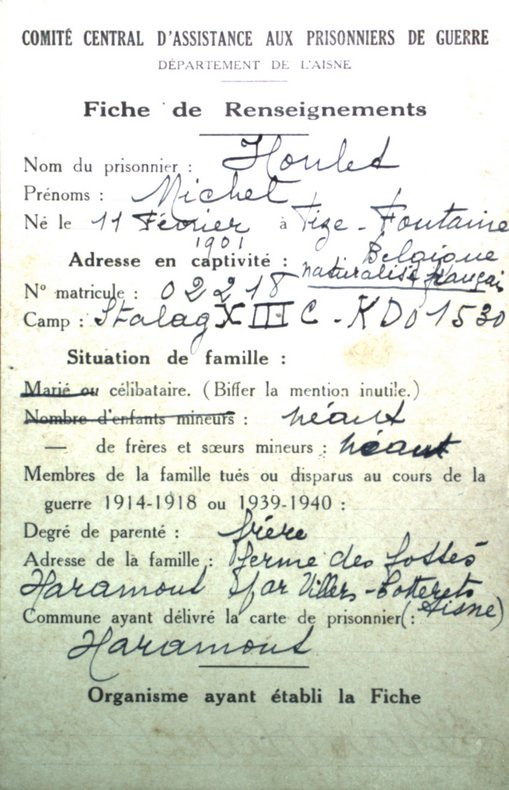 COMITÉ CENTRAL D'ASSISTANCE AUX PRISONNIERS DE GUERRE
DÉPARTEMENT DE L'AISNE
Fiche de Renseignements
Nom du prisonnier : Houlet
Prénoms : Michel
Né le 11 Février 1901 à Fize-Fontaine
Belgique
Adresse en captivité : naturalisé français
N° matricule : 02218
Camp : Stalag XIII C - KDO 1530
Situation de famille :
Marié ou célibataire. (Biffer la mention inutile.)
Nombre d'enfants mineurs : néant
— de frères et sœurs mineurs : néant
Membres de la famille tués ou disparus au cours de la
guerre 1914-1918 ou 1939-1940 :
Degré de parenté : frère
Adresse de la famille : ferme des fossés
Haramont par Villers-Cotterets
(Aisne)
Commune ayant délivré la carte de prisonnier :
Haramont
Organisme ayant établi la Fiche